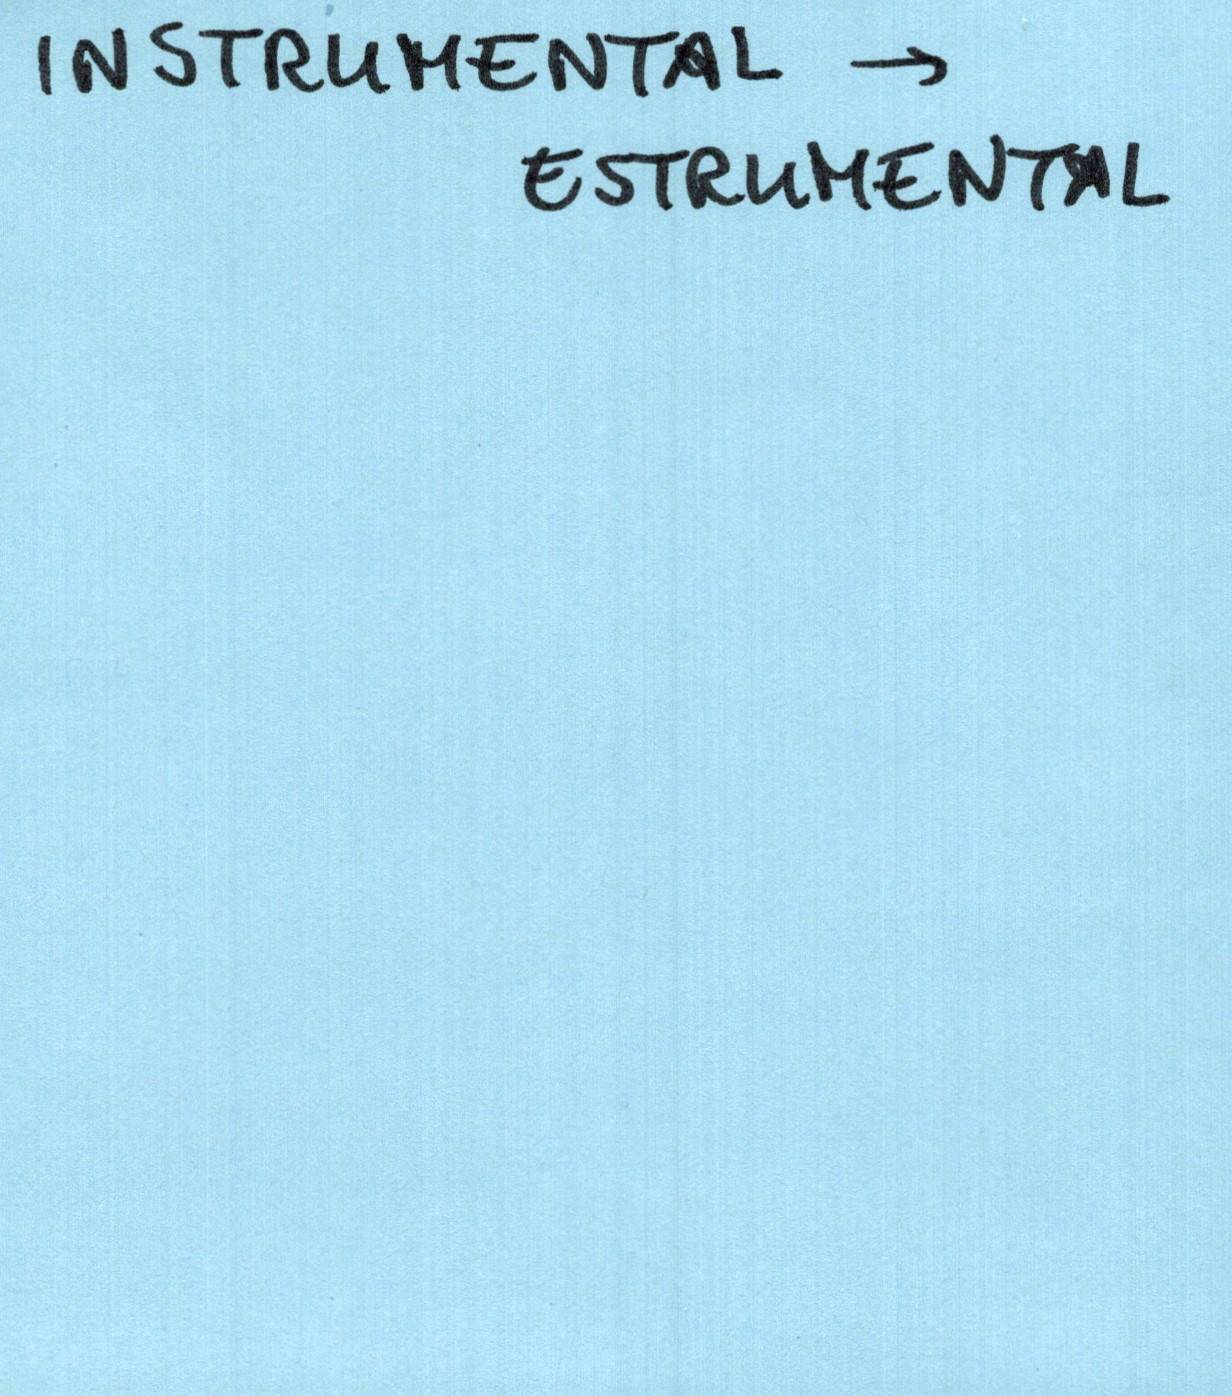 INSTRUMENTAL →
ESTRUMENTAL